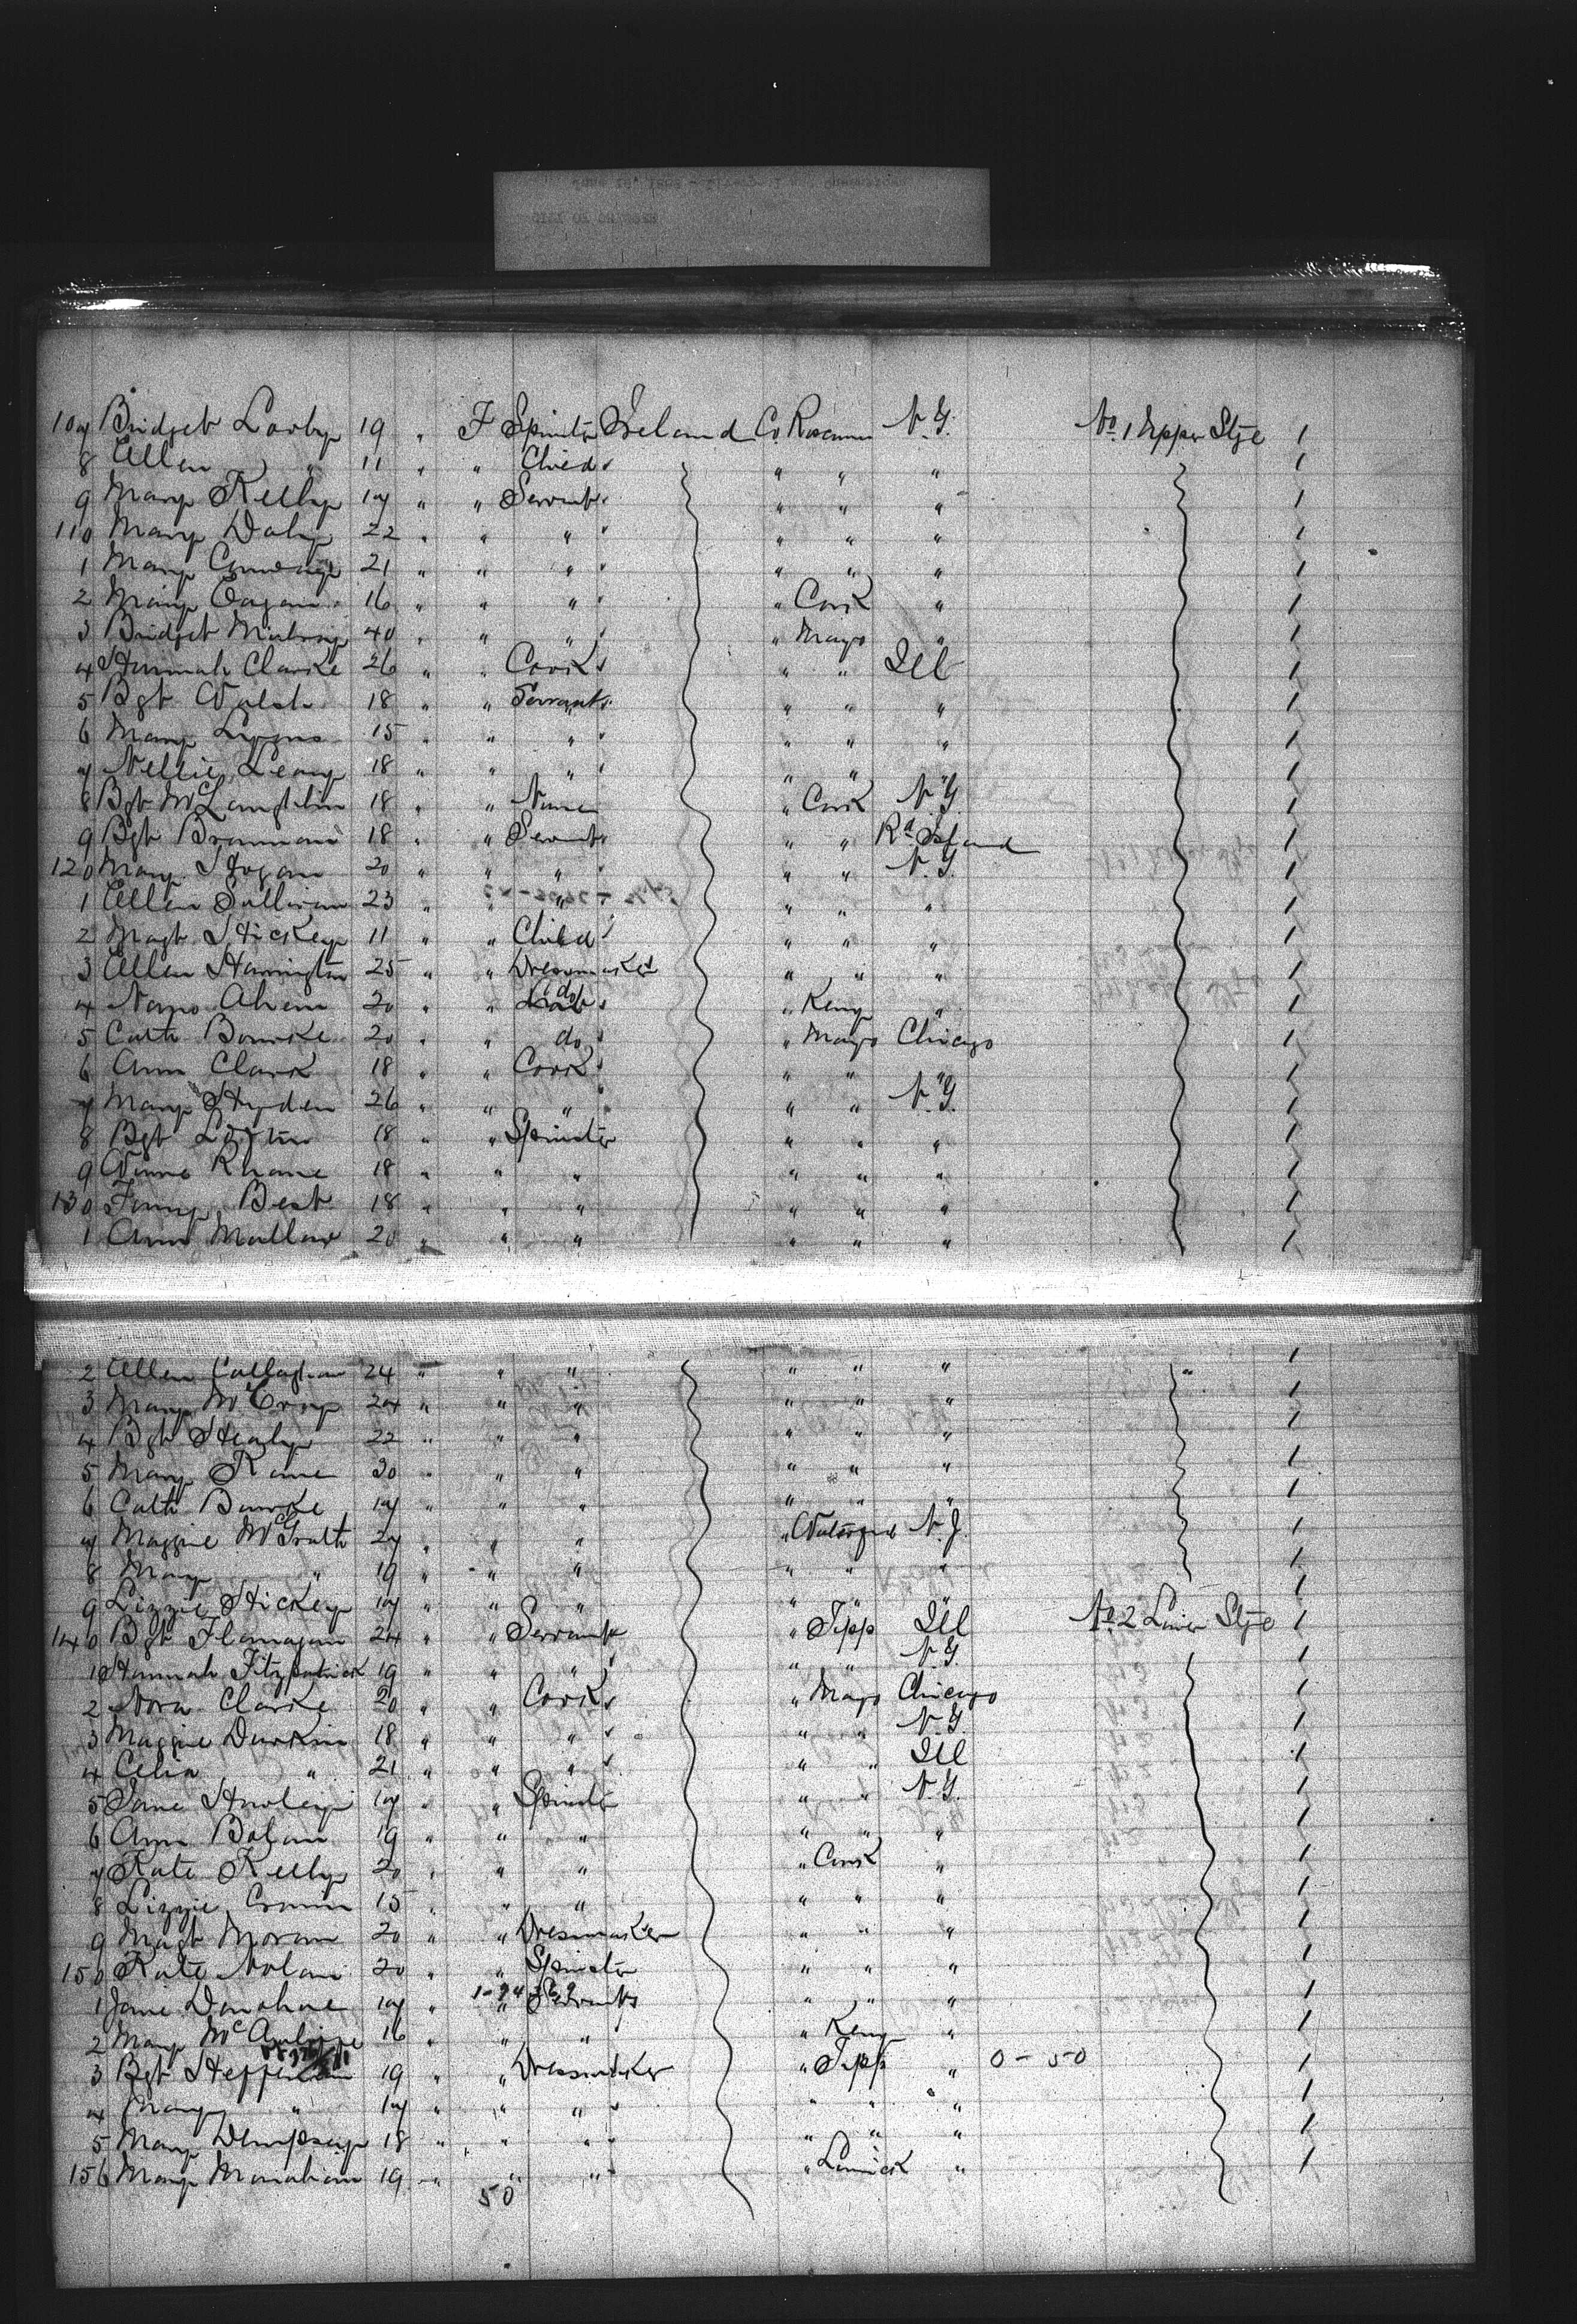 107 Bridget 19 " F Spinster Ireland Co Roscomn N.Y. No. 1 Upper Stge 1
8 Ellen " 11 " " Child " " " 1
9 Mary Kelly 17 " " Servant " " " 1
110 Mary Daly 22 " " " " " " 1
1 Mary 21 " " " " " " 1
2 Mary Eagan 16 " " " " Cork " 1
3 Bridget 40 " " " " Mayo " 1
4 Hannah Clarke 26 " " Cook " " Ill 1
5 Bgt Walsh 18 " " Servant " " " 1
6 Mary 15 " " " " " " 1
7 Nellie Leary 18 " " " " " " 1
8 Bgt McLaughlin 18 " " " Cork N.Y. 1
9 Bgt Brannan 18 " " Servant " " Rd Island 1
120 Mary Hogan 20 " " " " " N.Y. 1
1 Ellen Sullivan 23 " " " " " " 1
2 Magt Hickey 11 " " Child " " " 1
3 Ellen Harrington 25 " " Dressmaker " " " 1
4 Ahern 20 " " do " Kerry " 1
5 Cath Bourke 20 " " do " Mayo Chicago 1
6 Ann Clark 18 " " Cook " " " 1
7 Mary Hyden 26 " " " " " N.Y. 1
8 Bgt Loftus 18 " " Spinster " " " 1
9 Ruane 18 " " " " " " 1
130 Fanny Best 18 " " " " " " 1
1 Ann 20 " " " " " " 1
2 Ellen Callaghan 24 " " " " " " 1
3 Mary 24 " " " " " " 1
4 Bgt Healy 22 " " " " " " 1
5 Mary Kane 30 " " " " " " 1
6 Cath Bourke 17 " " " " " " 1
7 Maggie McGrath 27 " " " " Waterford N.J. 1
8 Mary " 19 " " " " " " 1
9 Lizzie Hickey 17 " " " " " " 1
140 Bgt Flanagan 24 " " Servant " Tipp Ill No. 2 Lower Stge 1
1 Hannah Fitzpatrick 19 " " " " " N.Y. 1
2 Nora Clarke 20 " " Cook " Mayo Chicago 1
3 Maggie Durkin 18 " " " " " N.Y. 1
4 Celia " 21 " " " " " Ill 1
5 Jane Hawley 17 " " Spinster " " N.Y. 1
6 Ann Bolan 19 " " " " " " 1
7 Kate Kelly 20 " " " " Cork " 1
8 Lizzie Cronin 15 " " " " " " 1
9 Magt Moran 20 " " Dressmaker " " " 1
150 Kate Nolan 20 " " Spinster " " " 1
1 Jane Donohue 17 " " Servant " " " 1
2 Mary McAuliffe 16 " " " " Kerry " 1
3 Bgt 19 " " Dressmaker " Tipp " 0-50 1
4 Mary " 17 " " " " " " 1
5 Mary Dempsey 18 " " " " " " 1
156 Mary Manahan 19 " " " " Limrick " 1
50